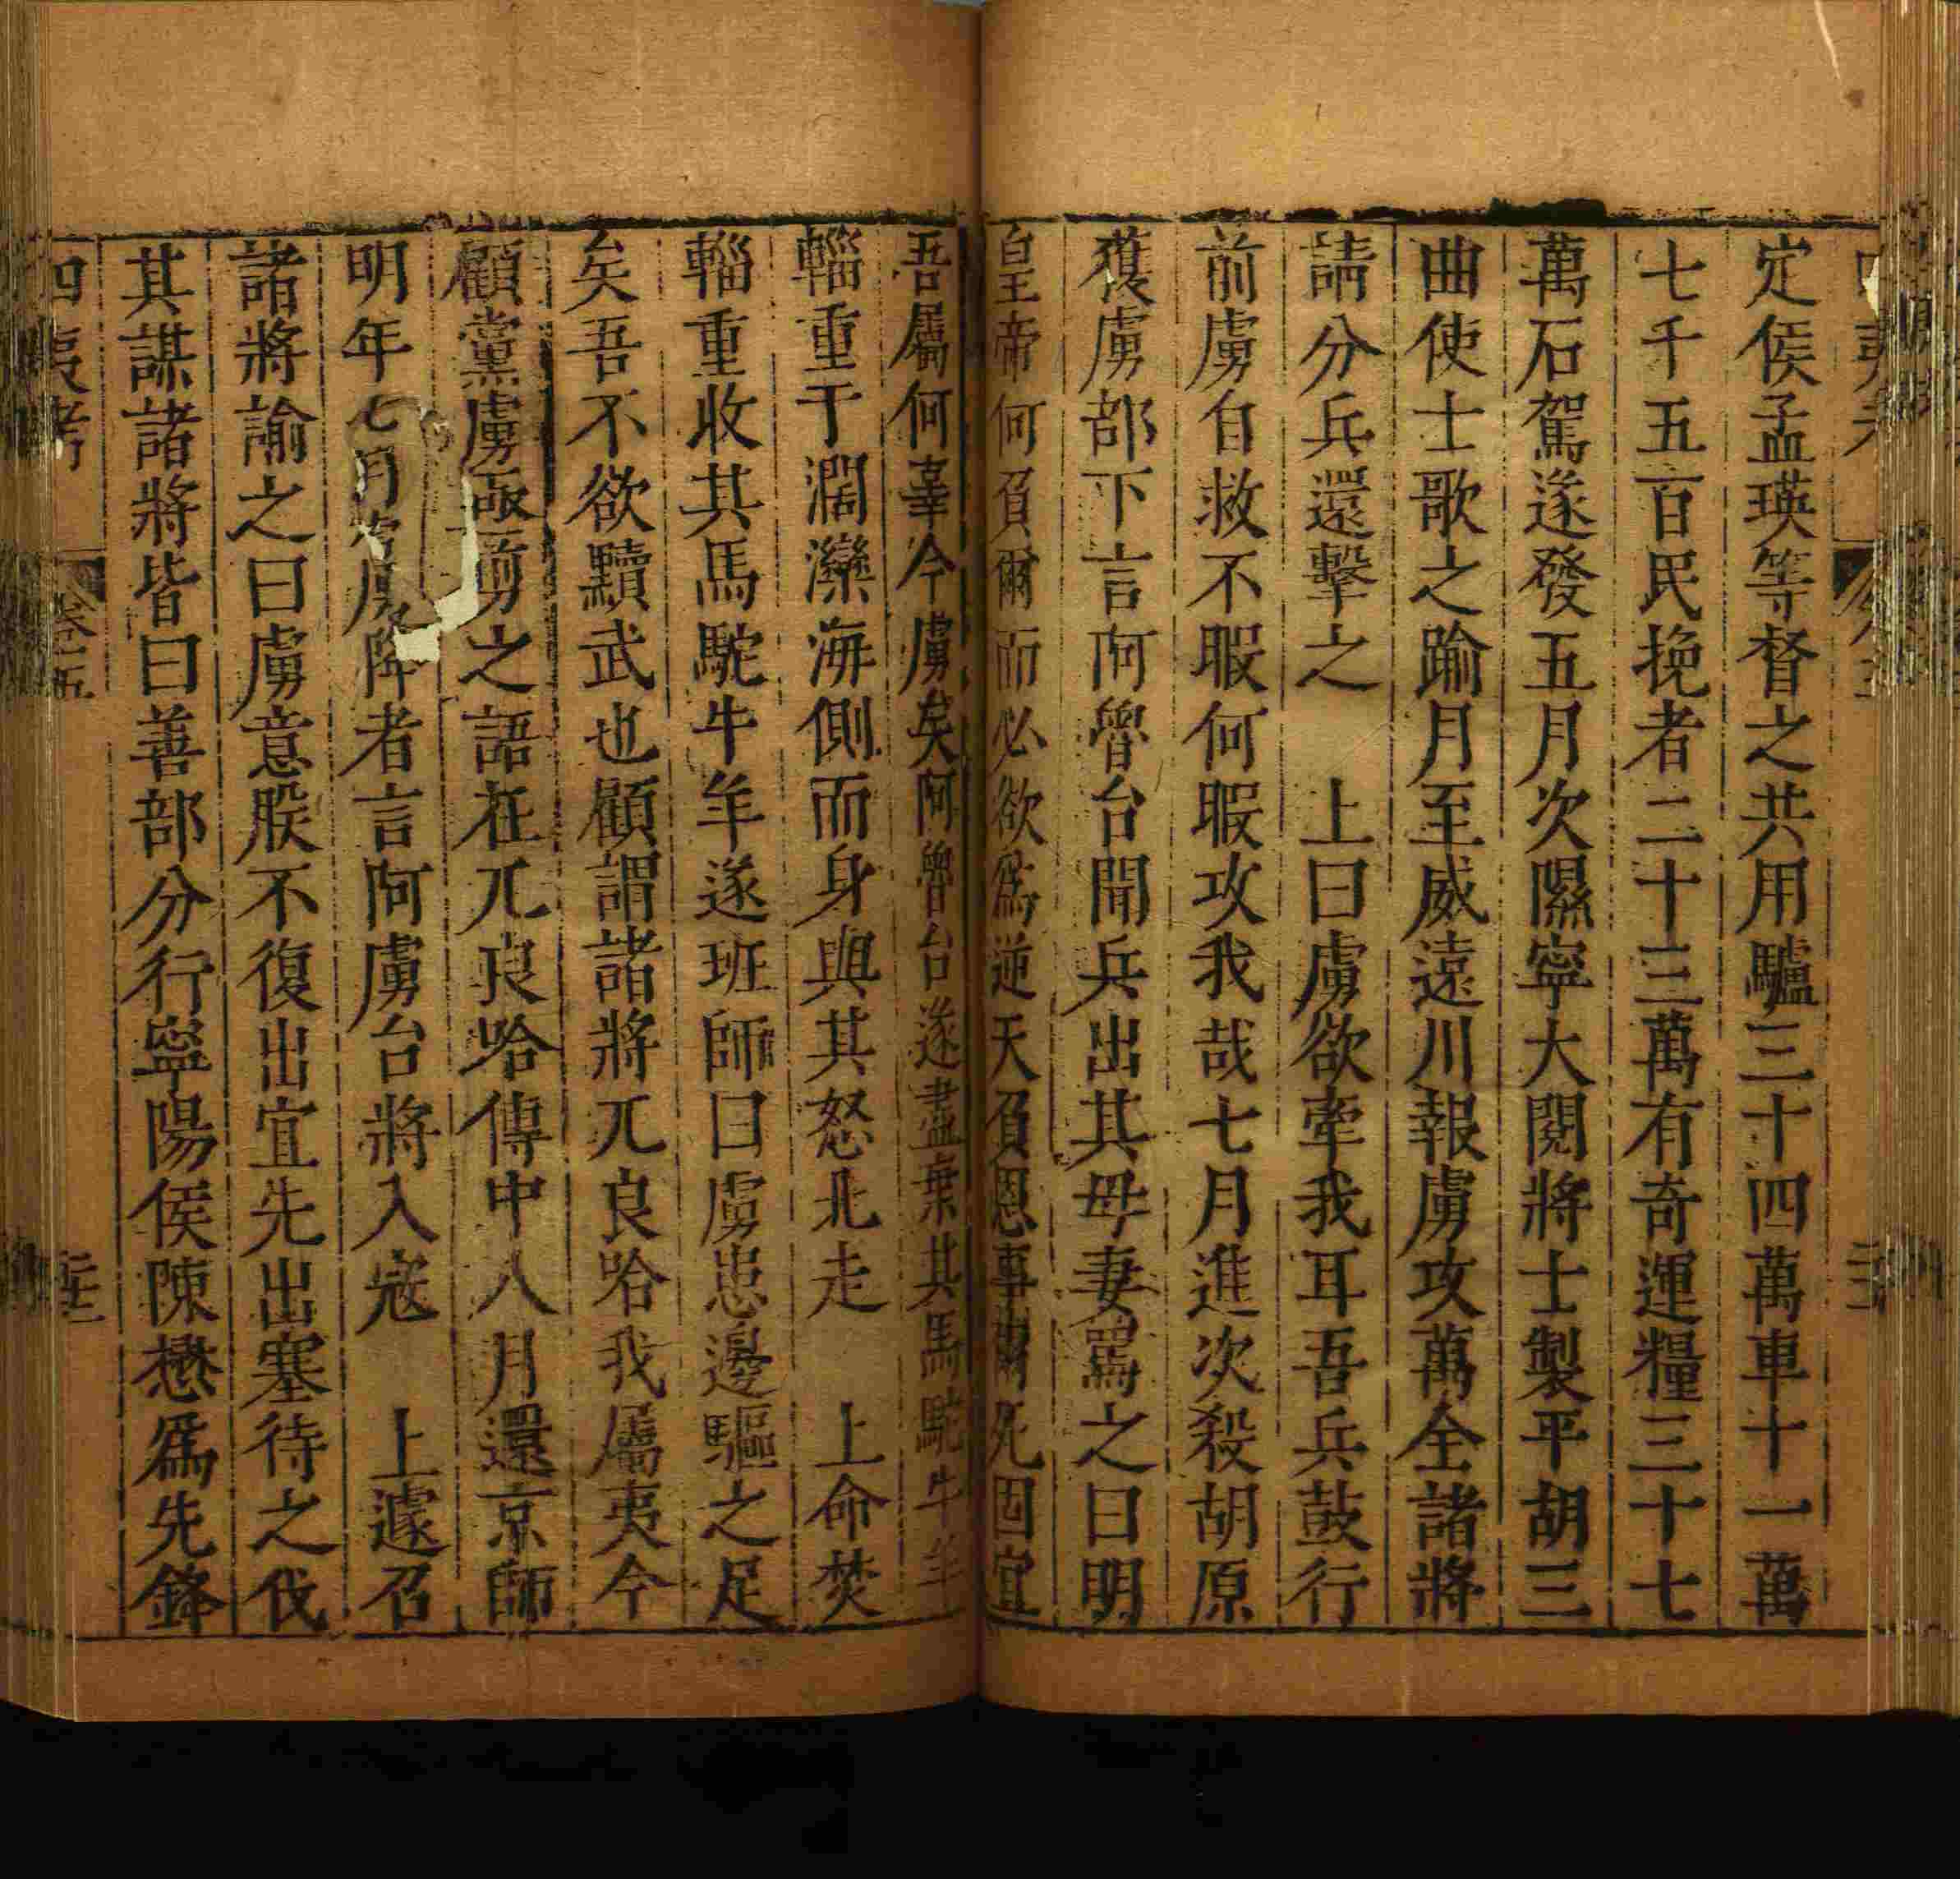 定侯孟瑛等督之共用驢三十四萬車十一萬
七千五百民挽者二十三萬有奇運糧三十七
萬石駕遂發五月次隰寧大閱將士製平胡三
曲使士歌之踰月至威遠川報虜攻萬全諸將
請分兵還擊之　上曰虜欲牽我耳吾兵鼓行
前虜自救不暇何暇攻我哉七月進次殺胡原
獲虜部下言阿魯台聞兵出其母妻罵之曰明
皇帝何負爾而必欲爲逆天負恩事爾死固宜
吾屬何辜今虜矣阿魯台遂盡棄其馬駝牛羊
輜重于濶灤海側而身與其孥北走　上命焚
輜重收其馬駝牛羊遂班師曰虜患邊驅之足
矣吾不欲黷武也顧謂諸將兀良哈我屬夷今
顧黨虜亟剪之語在兀良哈傳中八月還京師
明年七月虜降者言阿虜台將入寇　上遽召
諸將諭之曰虜意朕不復出宜先出塞待之伐
其謀諸將皆曰善部分行寧陽侯陳懋爲先鋒
四夷考　卷五